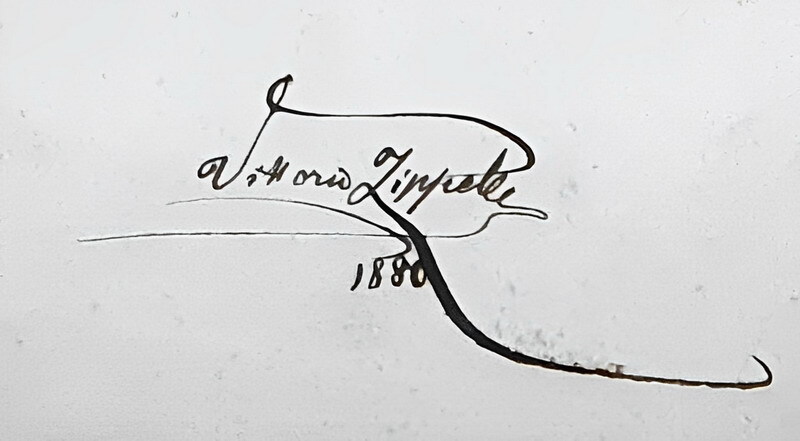 Vittorio Zippel
1880